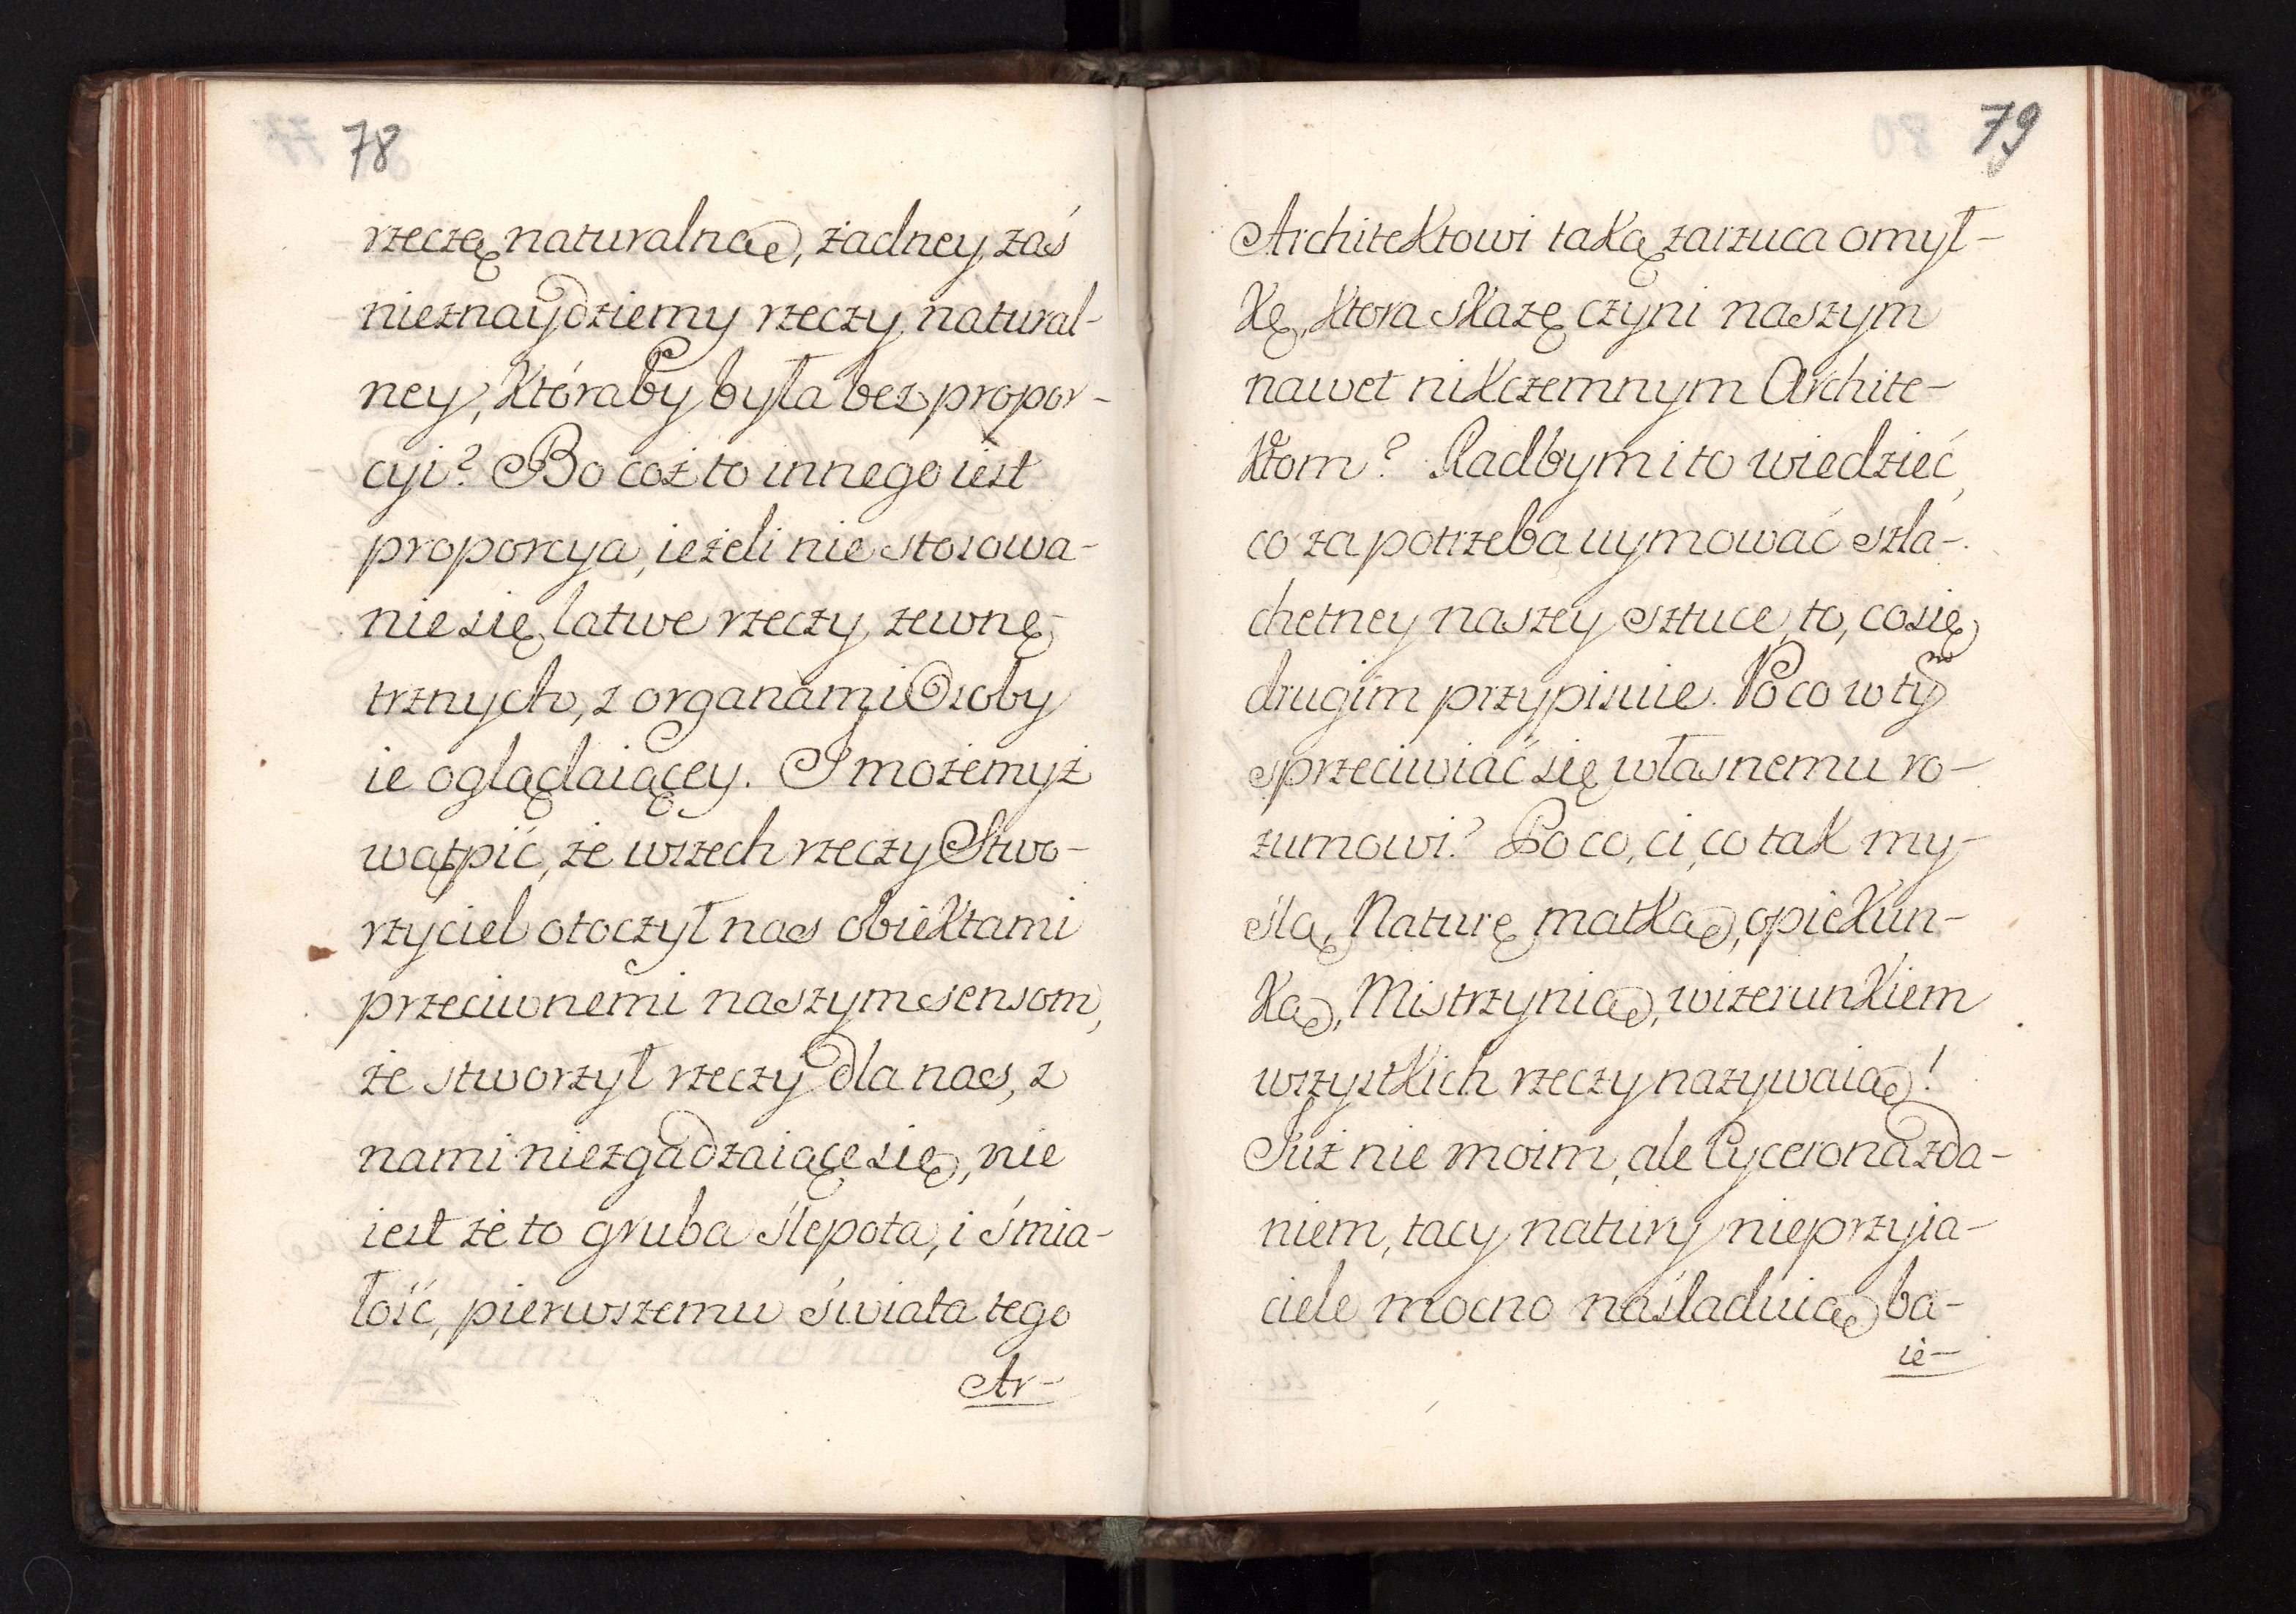 78
rzeczą naturalną, żadney zaś
nieznaydziemy rzeczy natural-
ney, któraby była bez propor-
cyi? Bo coż to innego iest
proporcya, ieżeli nie stosowa-
nie się latwe rzeczy zewnę-
trznych, z organami Osoby
ie oglądaiącey. I możemyż
wątpić, że wszech rzeczy Stwo-
rzyciel otoczył nas obiektami
przeciwnemi naszym sensom,
że stworzył rzeczy dla nas, z
nami niezgadzaiące się, nie
iest że to gruba ślepota, i śmia-
łość, pierwszemu świata tego
Ar-
79
Architektowi taką zarzuca omył-
kę, ktora skazę czyni naszym
nawet nikczemnym Archite-
ktom? Radbym i to wiedzieć,
co za potrzeba uymować szla-
chetney naszey sztuce, to, co się
drugim przypisuie. Po co w tym
sprzeciwiać się własnemu ro-
zumowi? Po co, ci, co tak my-
ślą, Naturę matką, opiekun-
ką, Mistrzynią, wizerunkiem
wszystkich rzeczy nazywaią!
Już nie moim, ale Cycerona zda-
niem, tacy natury nieprzyia-
ciele mocno naśladuią ba-
ie-